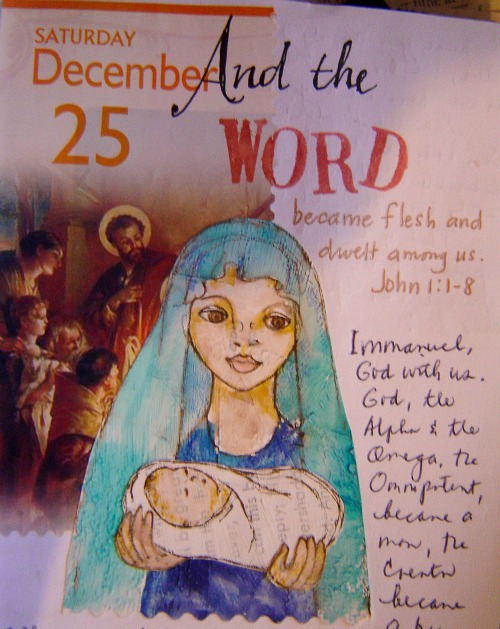 SATURDAY
December
25
And the
WORD
became flesh and
dwelt among us.
John 1:1-8
Immanuel,
God with us.
God, the
Alpha & the
Omega, the
Omnipotent,
became a
man, the
Creator
became